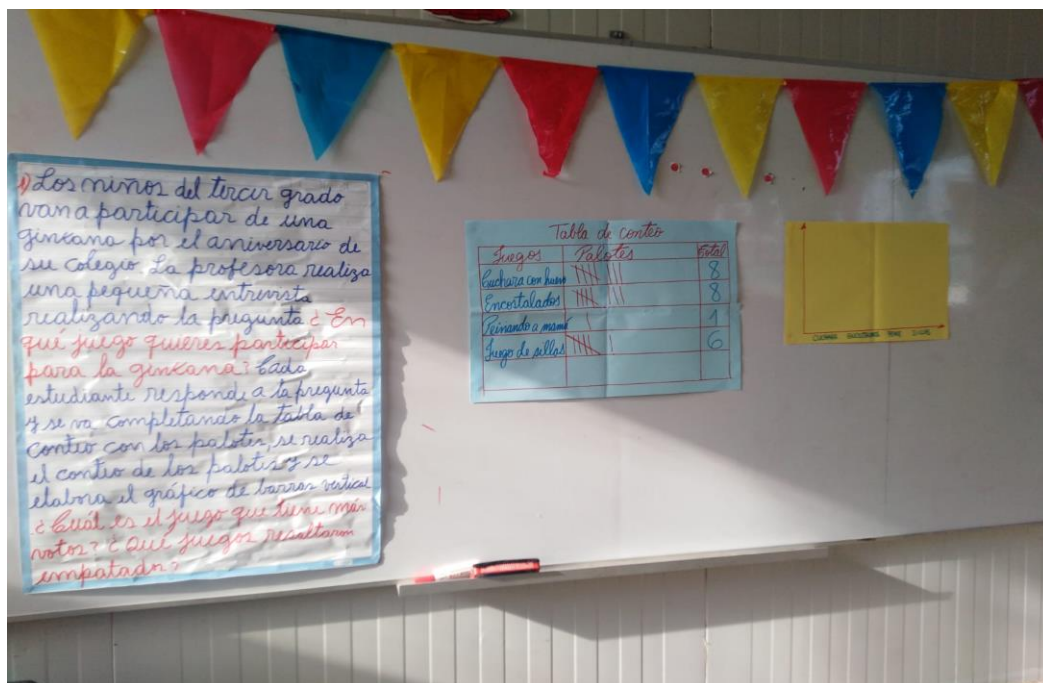 1) Los niños del tercer grado
van a participar de una
ginkana por el aniversario de
su colegio. La profesora realiza
una pequeña entrevista
realizando la pregunta ¿En
qué juego quieres participar
para la ginkana? Cada
estudiante responde a la pregunta
y se va completando la tabla de
conteo con los palotes, se realiza
el conteo de los palotes y se
elabora el gráfico de barras vertical
¿Cuál es el juego que tiene más
votos? ¿Qué juegos resultaron
empatados?
Tabla de conteo
Juegos Palotes Total
Cuchara con huevo 8
Encostalados 8
Peinando a mamá 1
Juego de sillas 6
CUCHARA ENCOSTALADOS PEINE SILLAS